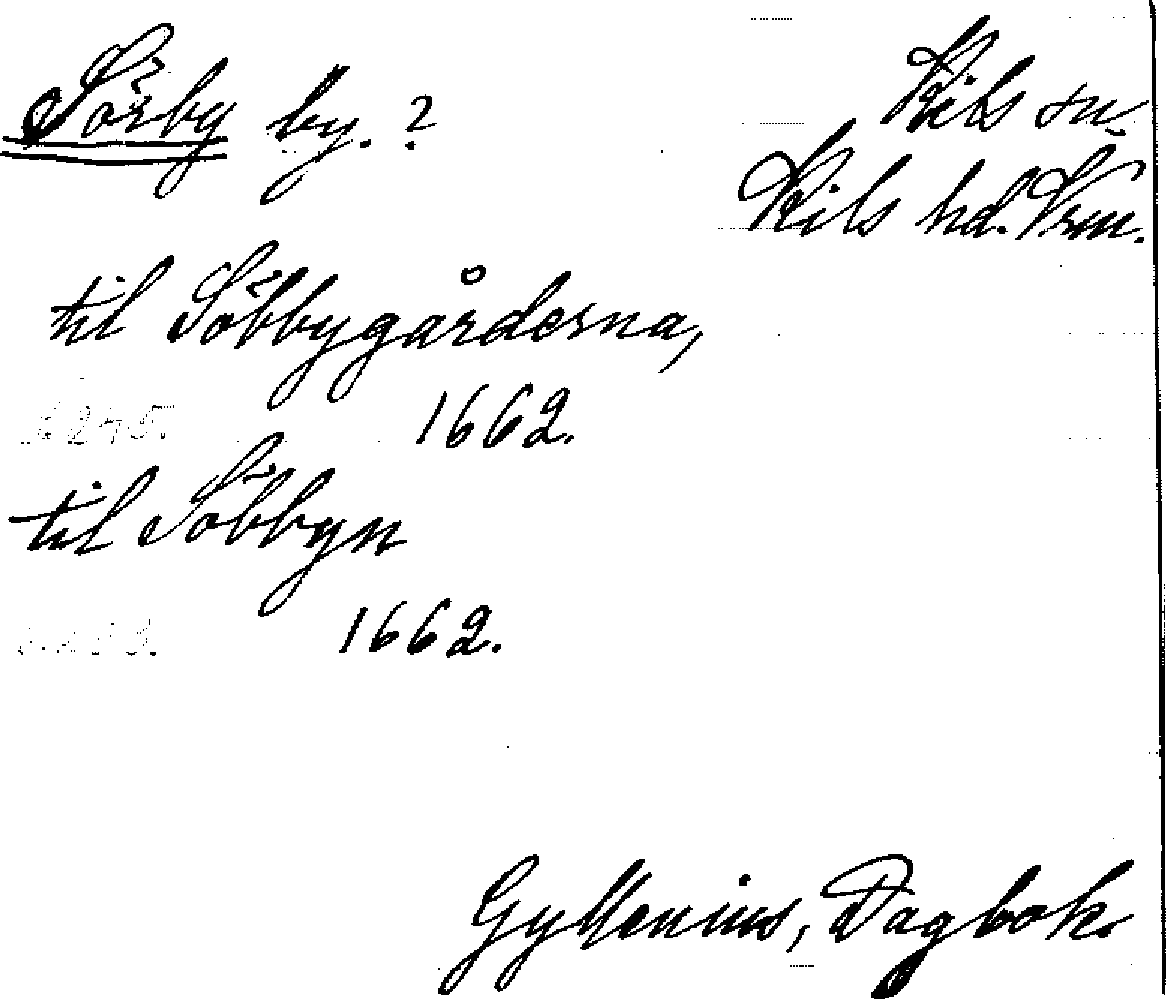 Sörby by. ?
Kils sn.
Kils hd. Vrm.
til Söbbygårderna,
s. 245. 1662.
til Söbbyn
1662.
Gyllenius, Dagbok.